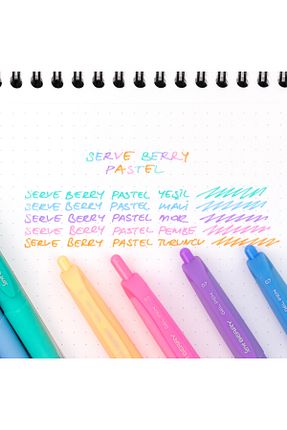 SERVE BERRY
PASTEL
SERVE BERRY PASTEL YEŞİL
SERVE BERRY PASTEL MAVİ
SERVE BERRY PASTEL MOR
SERVE BERRY PASTEL PEMBE
SERVE BERRY PASTEL TURUNCU